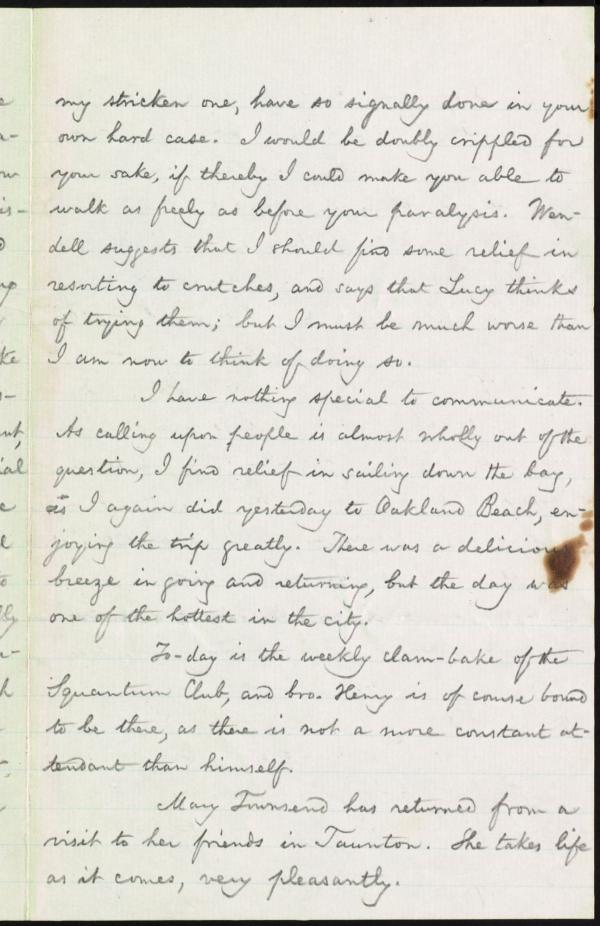 my stricken one, have so signally done in your
own hard case. I would be doubly crippled for
your sake, if thereby I could make you able to
walk as freely as before your paralysis. Wen-
dell suggests that I should find some relief in
resorting to crutches, and says that Lucy thinks
of trying them; but I must be much worse than
I am now to think of doing so.
I have nothing special to communicate.
As calling upon people is almost wholly out of the
question, I find relief in sailing down the bay,
as I again did yesterday to Oakland Beach, en-
joying the trip greatly. There was a delicious
breeze in going and returning, but the day was
one of the hottest in the city.
To-day is the weekly clam-bake of the
Squantum Club, and bro. Henry is of course bound
to be there, as there is not a more constant at-
tendant than himself.
Mary Townsend has returned from a
visit to her friends in Taunton. She takes life
as it comes, very pleasantly.